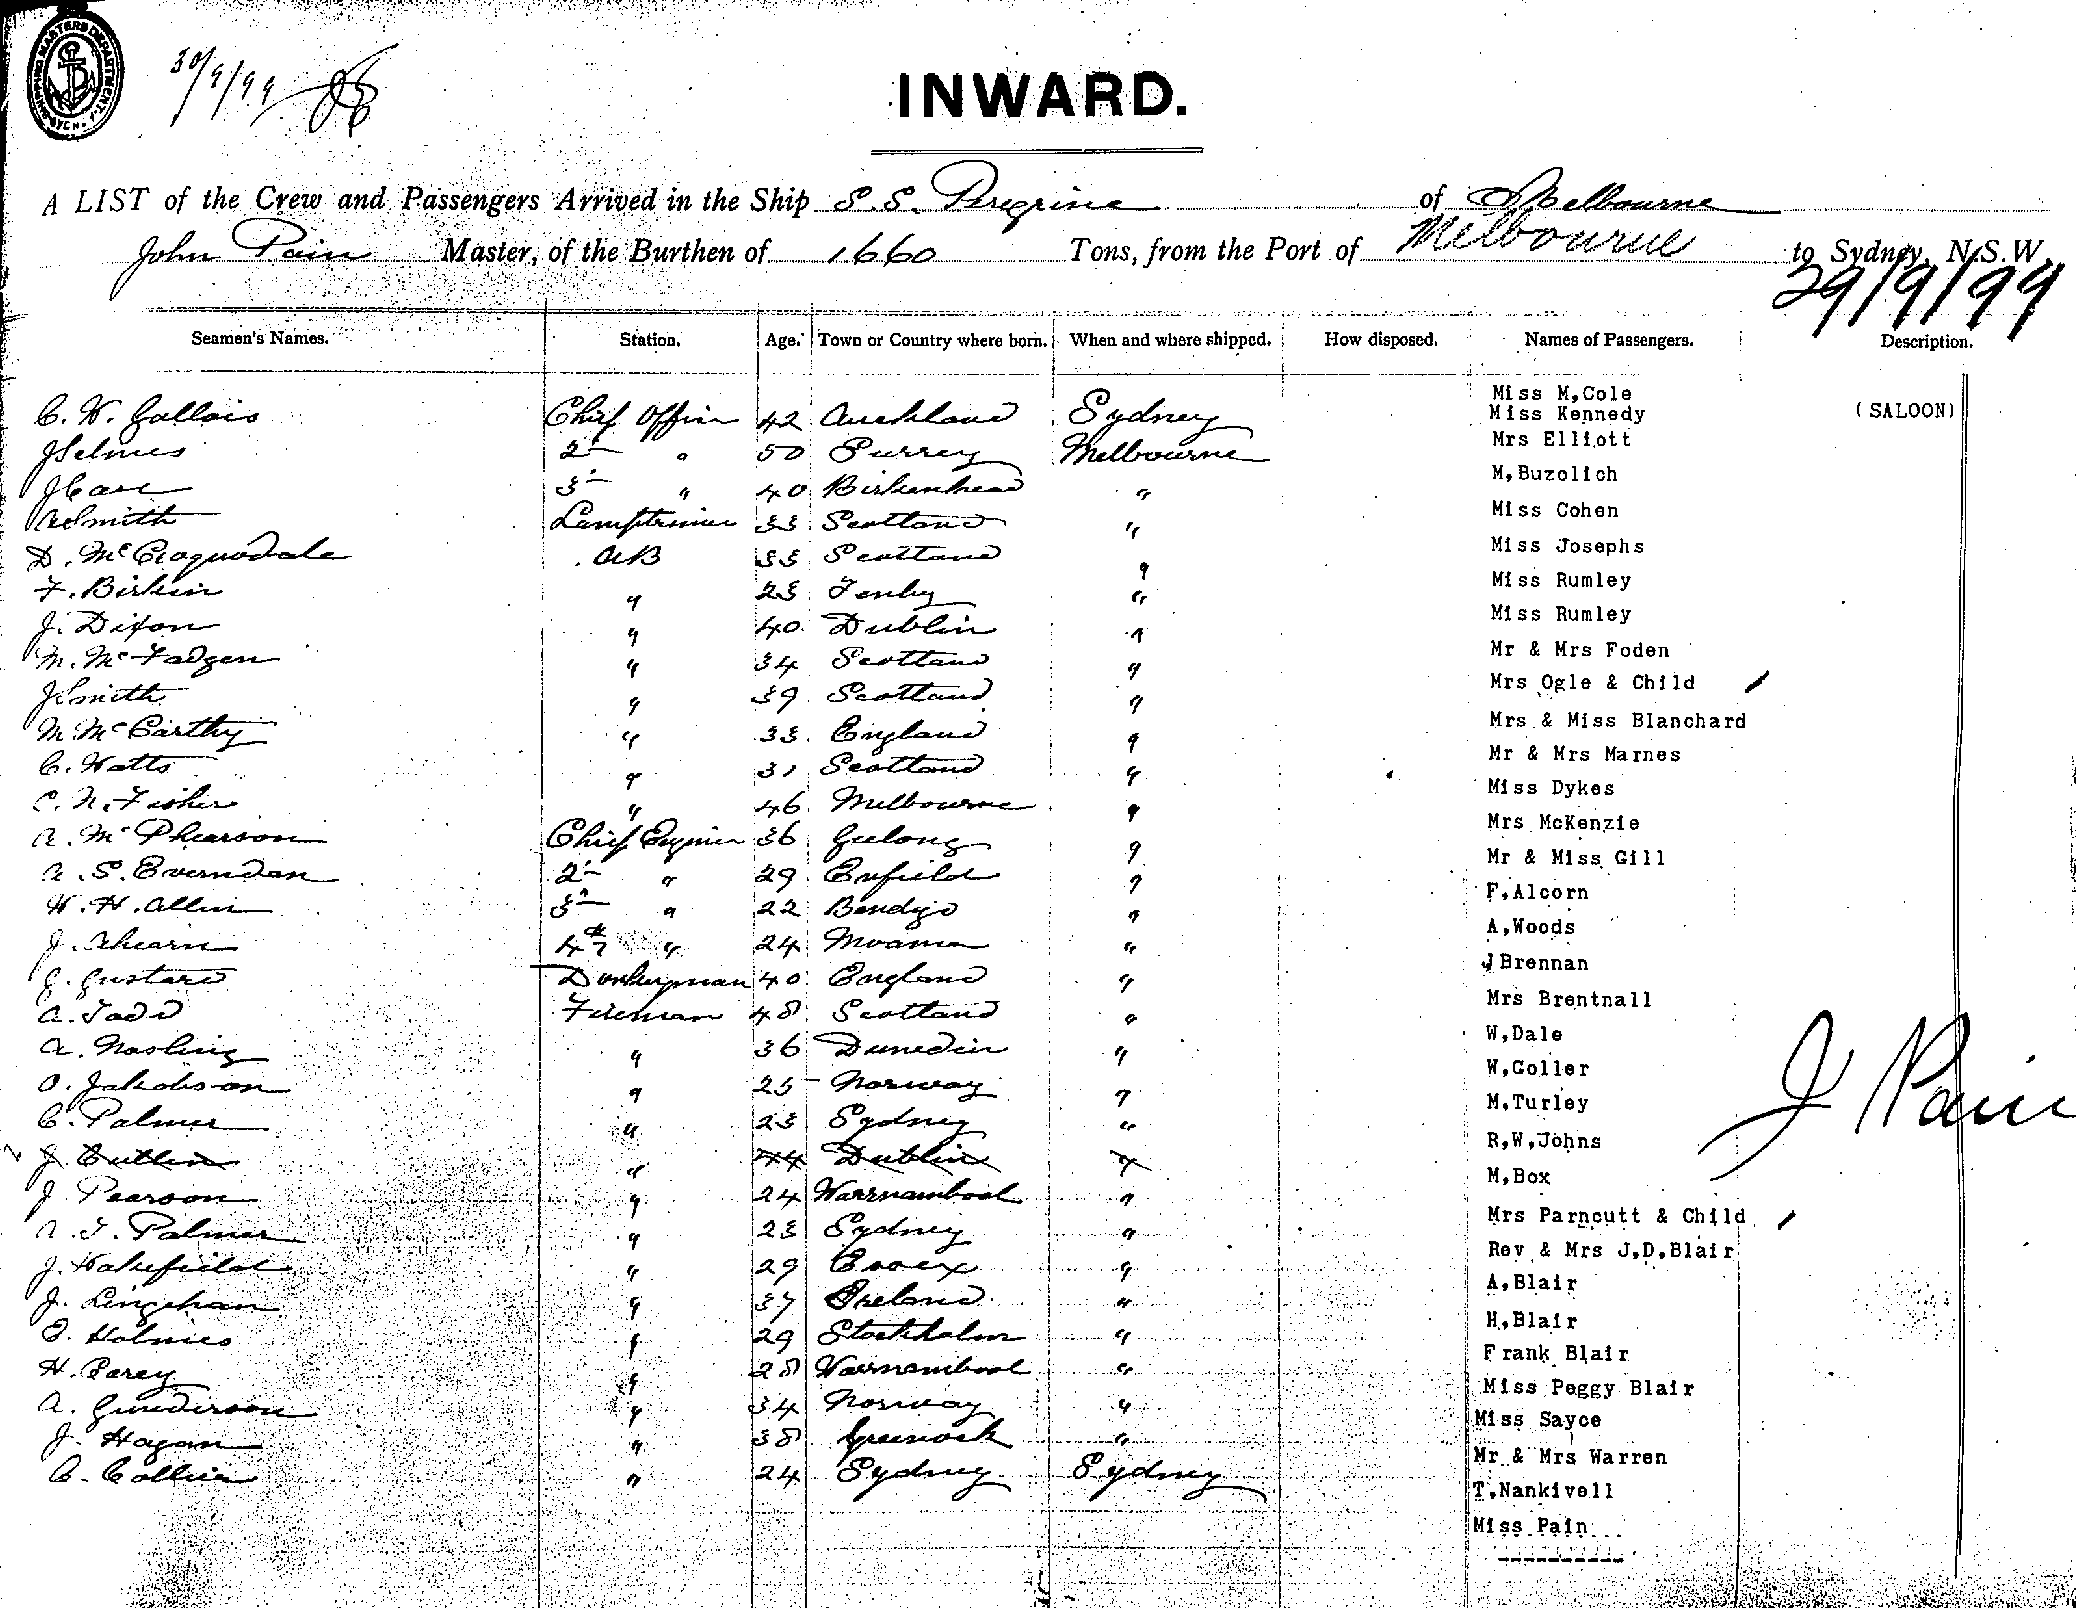 30/9/99
INWARD.
A LIST of the Crew and Passengers Arrived in the Ship S.S. Peregrine of Melbourne
John Pain Master, of the Burthen of 1660 Tons, from the Port of Melbourne to Sydney, N.S.W
29/9/99
Seamen's Names. Station. Age. Town or Country where born. When and where shipped. How disposed. Names of Passengers. Description.
Miss M,Cole
C. W. Gallais Chief Officer 42 Auckland Sydney Miss Kennedy (SALOON)
J Selmes 2 " 50 Surrey Melbourne Mrs Elliott
J Care 3 " 40 Birkenhead " M,Buzolich
A Smith Lamptrimmer 33 Scotland " Miss Cohen
D. McCroquodale AB 33 Scotland " Miss Josephs
F. Birkin " 23 Tenby " Miss Rumley
J. Dixon " 40 Dublin " Miss Rumley
M. McFadgen " 34 Scotland " Mr & Mrs Foden
J Smith " 39 Scotland " Mrs Ogle & Child
M McCarthy " 33 England " Mrs & Miss Blanchard
C. Watts " 31 Scotland " Mr & Mrs Marnes
C. N. Fisher " 46 Melbourne " Miss Dykes
A. McPhearson Chief Engineer 36 Geelong " Mrs McKenzie
A. S. Everndan 2 " 29 Enfield " Mr & Miss Gill
W. H. Allen 3 " 22 Bendigo " F,Alcorn
J. Ahearn 4 " 24 Moama " A,Woods
G. Gustard Donkeyman 40 England " J Brennan
A. Todd Fireman 48 Scotland " Mrs Brentnall
A. Nosling " 36 Dunedin " W,Dale
O. Jakobson " 25 Norway " W,Goller
C. Palmer " 23 Sydney " M,Turley
J. Butler " 44 Dublin " R,W,Johns
J. Pearson " 24 Warrnambool " M,Box
A. T. Palmer " 23 Sydney " Mrs Parncutt & Child
J. Wakefield " 29 Essex " Rev & Mrs J,D,Blair
J. Lingehan " 37 Ireland " A,Blair
O. Holmes " 29 Stockholm " H,Blair
H. Perey " 28 Warrnambool " Frank Blair
A. Gunderson " 34 Norway " Miss Peggy Blair
J. Hagan " 38 Greenock " Miss Sayce
C. Collier " 24 Sydney Sydney Mr & Mrs Warren
T,Nankivell
Miss Pain
J Pain